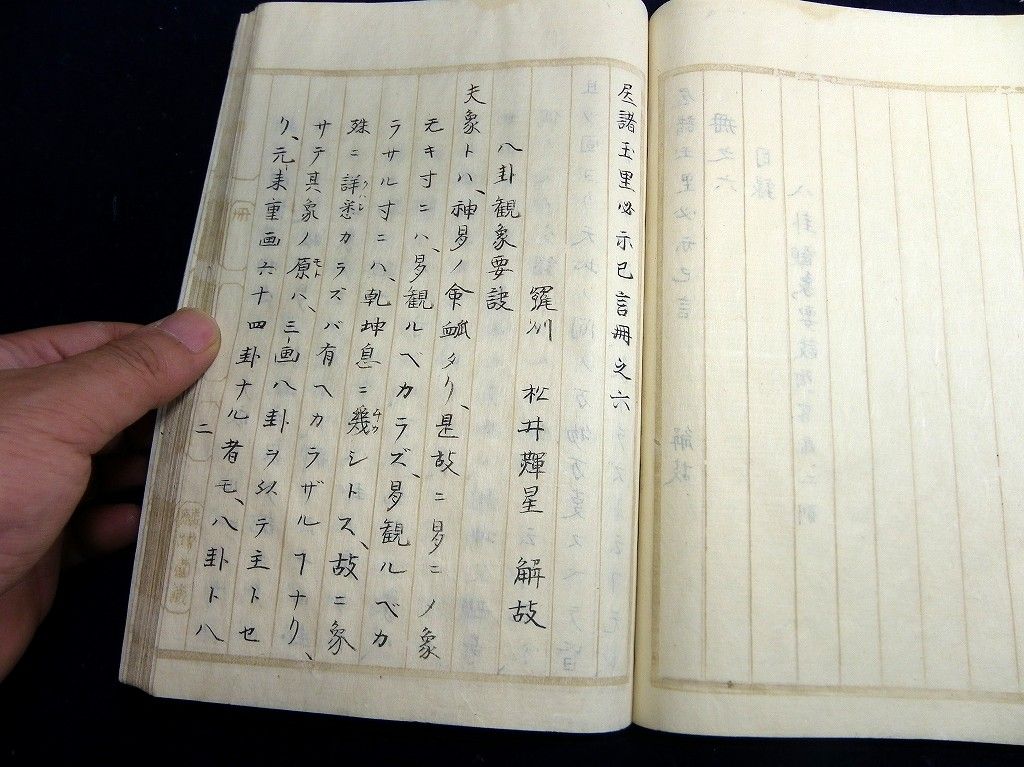 諸玉里必示已言冊之六
羅州 松井輝星 解故
八卦観象要訣
夫象トハ、神易ノ命衇タリ、是故ニ易ニメ象
无キ寸ニハ、易観ルベカラズ、易観ルベカ
ラサル寸ニハ、乾坤息ニ幾チカシトス、故ニ象
殊ニ詳悉クハシカラズバ有ヘカラザルヿナリ、
サテ其象ノ原モトハ、三画八卦ヲ以テ主トセ
リ、元来重画六十四卦ナル者モ、八卦ト八
冊
二